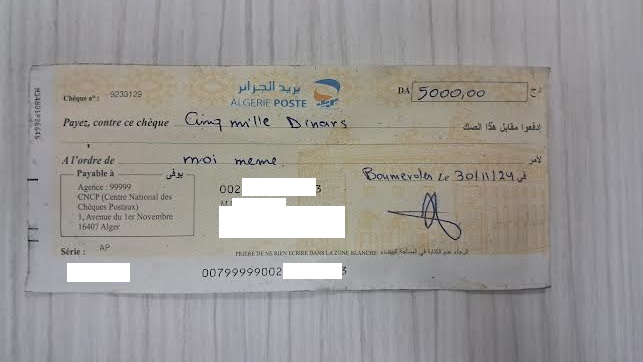 بريد الجزائر
ALGERIE POSTE
Chèque n°: 9233129
DA 5000,00 دج
Payez, contre ce chèque Cinq mille Dinars إدفعوا مقابل هذا الصك
A l'ordre de moi meme لأمر
Payable à يوفى
Agence : 99999
CNCP (Centre National des
Chèques Postaux)
1, Avenue du 1er Novembre
16407 Alger
002 3
Boumerdes Le 30/11/24 في
Série : AP
PRIÈRE DE NE RIEN ECRIRE DANS LA ZONE BLANCHE الرجاء عدم الكتابة في المساحة البيضاء
00799999002 3